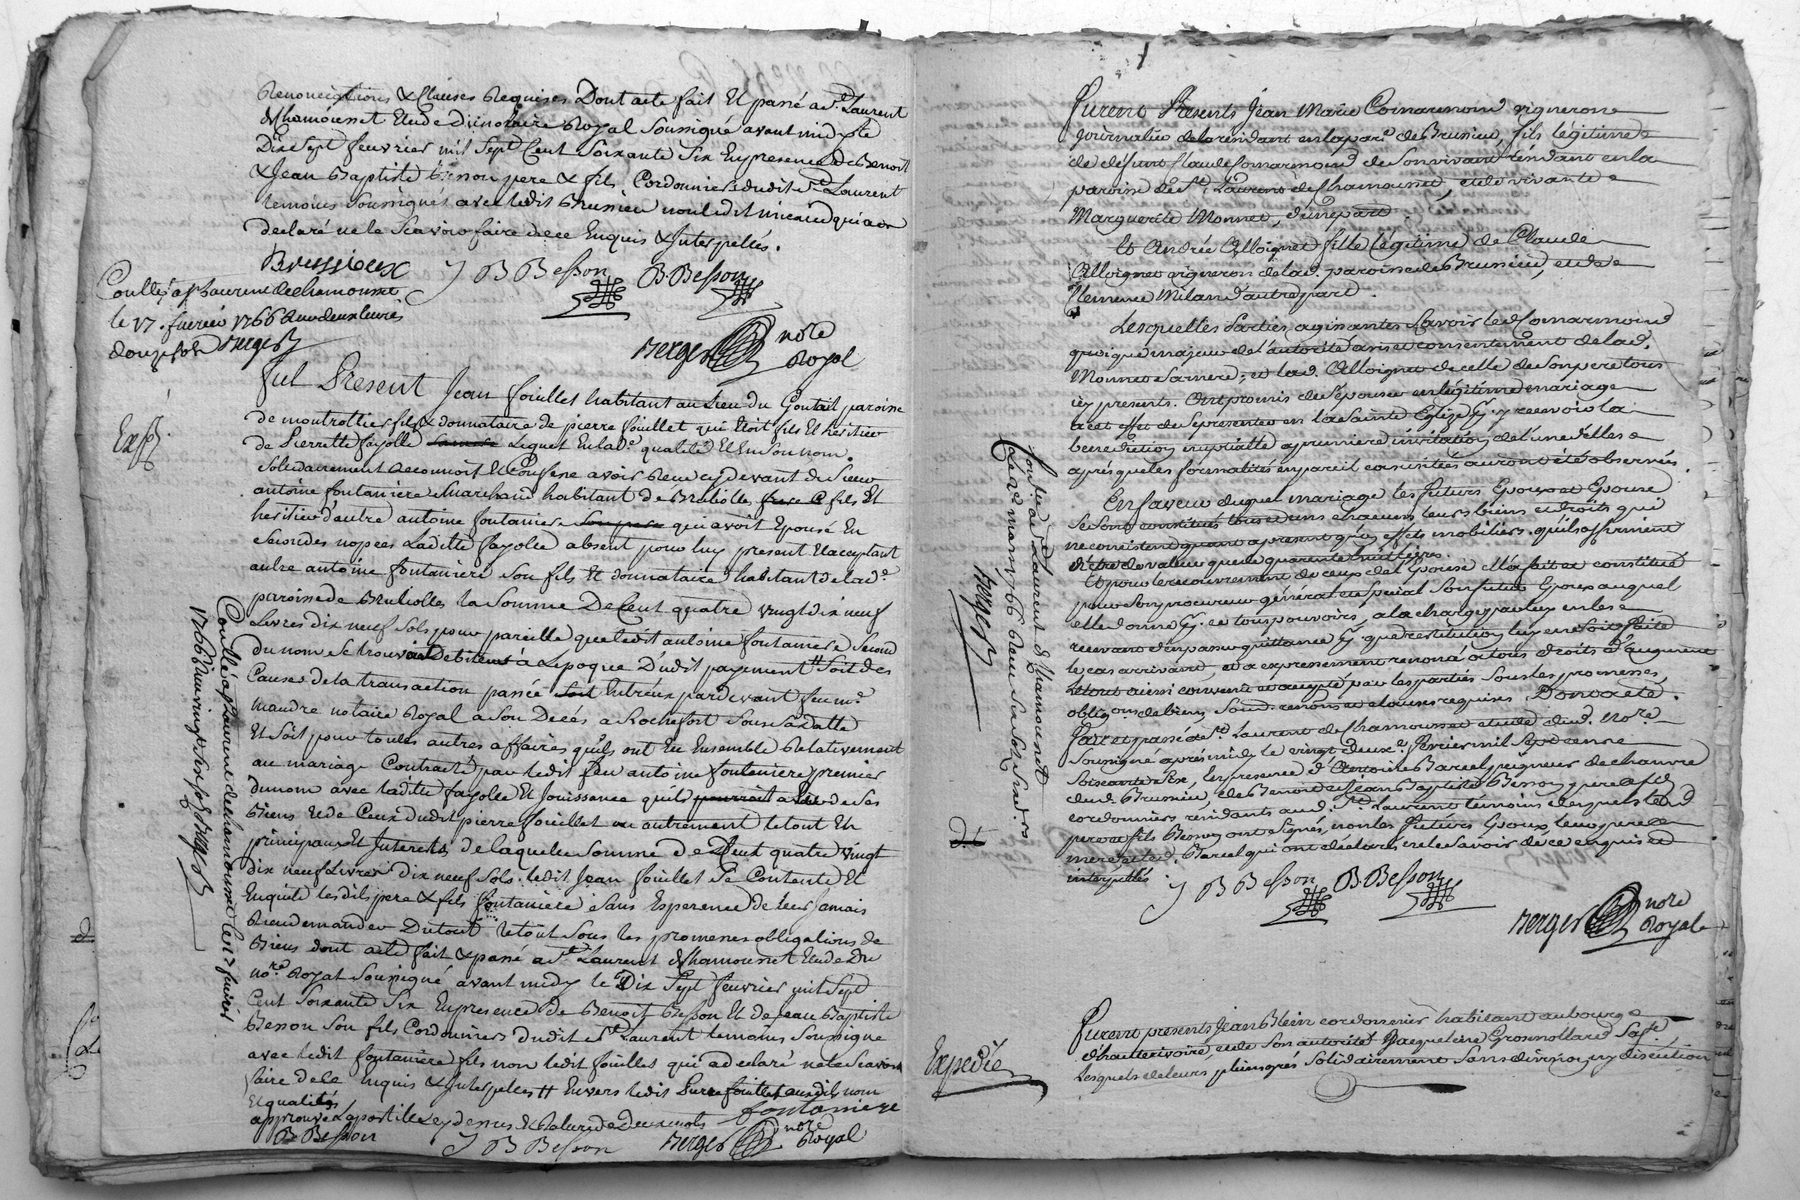 Renonciations & Clauses Requises Dont acte fait Et passé a St Laurent
de Chamousset Etude du notaire Royal Soussigné avant midy le
Dix Sept feuvrier mil Sept Cent Soixante Six En presence de Benoit
& Jean Baptiste Besson pere & fils Cordonniers dudit St Laurent
temoins soussignés avec ledit Brussieu non ledit
declaré ne le Scavoir faire de ce Enquis & Interpellés.
Brussieux J B Besson B. Besson
Conllé a St Laurent de chamousset
le 17. fuvrier 1766 Reçu deux livres
douze sols Berger
Berger nore
Royal
Exp.
Fut Présent Jean fouillet habitant au Lieu du Goutail paroisse
de montrottier fils & donnataire de pierre fouillet qui Etoit fils Et heritier
de Pierrette fayolle Lequel En lade. qualité Et En Son nom.
Solidairement Reconnoit Et Confesse avoir Receu cy devant de Sieur
antoine fontaniere Marchand habitant de Brulliolle fils Et
heritier d'autre antoine fontaniere Son pere qui avoit Epousé En
Secondes nopces Laditte fayolle absent pour luy present Et acceptant
autre antoine fontaniere son fils Et donnataire habitant de lade.
paroisse de Brulliolles la Somme De Cent quatre vingt dix neuf
Livres dix neuf sols pour pareille que ledit antoine fontaniere Second
du nom Se trouvait Debiteur à L'epoque D'udit payement Soit des
Causes de la transaction passée Soit Entreux pardevant feu me.
mandre notaire Royal a Son Decés a Rochefort Sous Sa datte
Et Soit pour toutes autres affaires qu'ils ont Eu Ensemble Relativement
au mariage Contracté par ledit feu antoine fontaniere premier
du nom avec laditte fayolle Et Jouissance qu'ils de Ses
Biens Et de Ceux dudit pierre fouillet ou autrement le tout En
principaux Et Interests de laquelle Somme de Cent quatre vingt
dix neuf Livres dix neuf Sols ledit Jean fouillet Se Contente Et
Enquitte lesdits pere & fils fontaniere Sans Esperence de leur Jamais
Rien demander Du tout le tout Sous les promesses obligations de
Biens dont acte fait & passé a St Laurent de Chamousset Etude du
nore. Royal Soussigné avant midy le Dix Sept feuvrier mil Sept
Cent Soixante Six En presence de Benoit Besson Et de Jean Baptiste
Besson Son fils Cordonniers dudit St Laurent temoins Soussignés
avec ledit fontaniere fils non ledit fouillet qui a declaré ne le Scavoir
faire de ce Enquis & Interpellés Envers ledit Pierre fouillet audit nom
Et qualités
approuvé L'apostille cy dessus & Rature de Deux mots fontaniere
B Besson J B Besson Berger nore
Royal
Conllé a St Laurent de chamousset le 17 fuvrier
1766 Reçu vingt six sols Berger
Furent Présents Jean Marie Comarmond vigneron
journalier de la résidant en la parse. de Brussieu, fils légitime
de deffunt Claude Comarmond de Son vivant résidant en la
paroisse de St. Laurent de Chamousset, et de vivante
Marguerite Monnet, d'une part.
Et Andrée Alloignet fille légitime de Claude
Alloignet vigneron de lad. paroisse de Brussieu, et de
Clemence Milan d'autre part.
Lesquelles Parties agissantes Savoir led. Comarmond
quoique majeur de l'autorité avis et consentement de lad.
Monnet Sa mere, et lad. Alloignet de celle de Son pere tous
icy presents. Ont promis de S'épouser en légitime mariage
a cet effet de Se présenter en la Sainte Eglise Pr. y recevoir la
benediction nuptialle a premiere invitation de l'une d'elles
après que les formalités en pareil cas usitées auront été observées.
En faveur duquel mariage les futurs Epoux et Epouse
Se Sont constitués tous et uns chacuns leurs biens et droits qui
ne consistent quant a present qu'en effets mobiliers. qu'ils affirment
n'être de valeur que de quarente huit livres.
Et pour le recouvrement de ceux de l'Epouse Ella fait et constitué
pour Son procureur général et Spécial Son futur Epoux auquel
elle donne Pr. ce tous pouvoirs, a la charge par luy en les
recevant d'en passer quittance Pr. que restitution luy en soit faite
le cas arrivant, et a expressement renoncé a tous droits d'augment
le tout ainsi convenu et accepté par les parties Sous les promesses,
obligons. de biens, Soum. renons. et clauses requises Dont acte.
Fait et passé a St. Laurent de Chamousset etude dud. Nore
Soussigné après midy le vingt deuxe. Fevrier mil Sept cent
Soixante Six, En presence d'Antoine Bareel peigneur de chanvre
dud. Brussieu, de Benoit et Jean Baptiste Besson pere et fils
cordonniers résidants aud. St. Laurent témoins desquels led.
pere et fils Besson ont Signés, non les futurs Epoux, leurs pere
mere et led. Bareel qui ont déclarés ne le Savoir de ce enquis et
interpellés.
J B Besson B. Besson
Berger nore
Royal
Conllé a St. Laurent de Chamousset
Le 2 mars 1766 Reçu
Berger
Expédié
Furent présents Jean Blein cordonnier habitant au bourg
d'hauterivoire, et de Son autorité Jacqueline Grosmollard Sa fe.
Lesquels de leurs pleins grés Solidairement Sans division ny discution